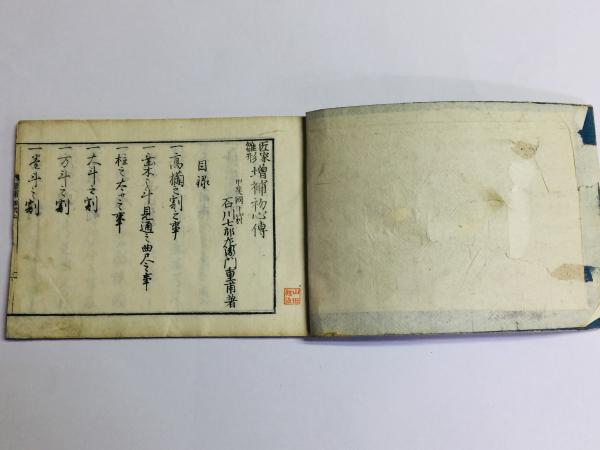 匠家雛形 増補初心傳
甲斐國下山村
石川七郎左衛門重甫著
目録
一高欄之割之事
一垂木と斗見通之曲尺之事
一柱之太サ之事
一大斗之割
一方斗之割
一巻斗之割